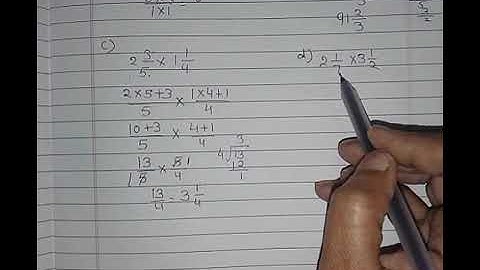 1x1
91 2/3
c)
2 3/5 x 1 1/4
2x5+3/5 x 1x4+1/4
10+3/5 x 4+1/4
13/5 x 5/4 1 1
4√13 3
12
1
13/4 = 3 1/4
d) 2 1/7 x 3 1/2